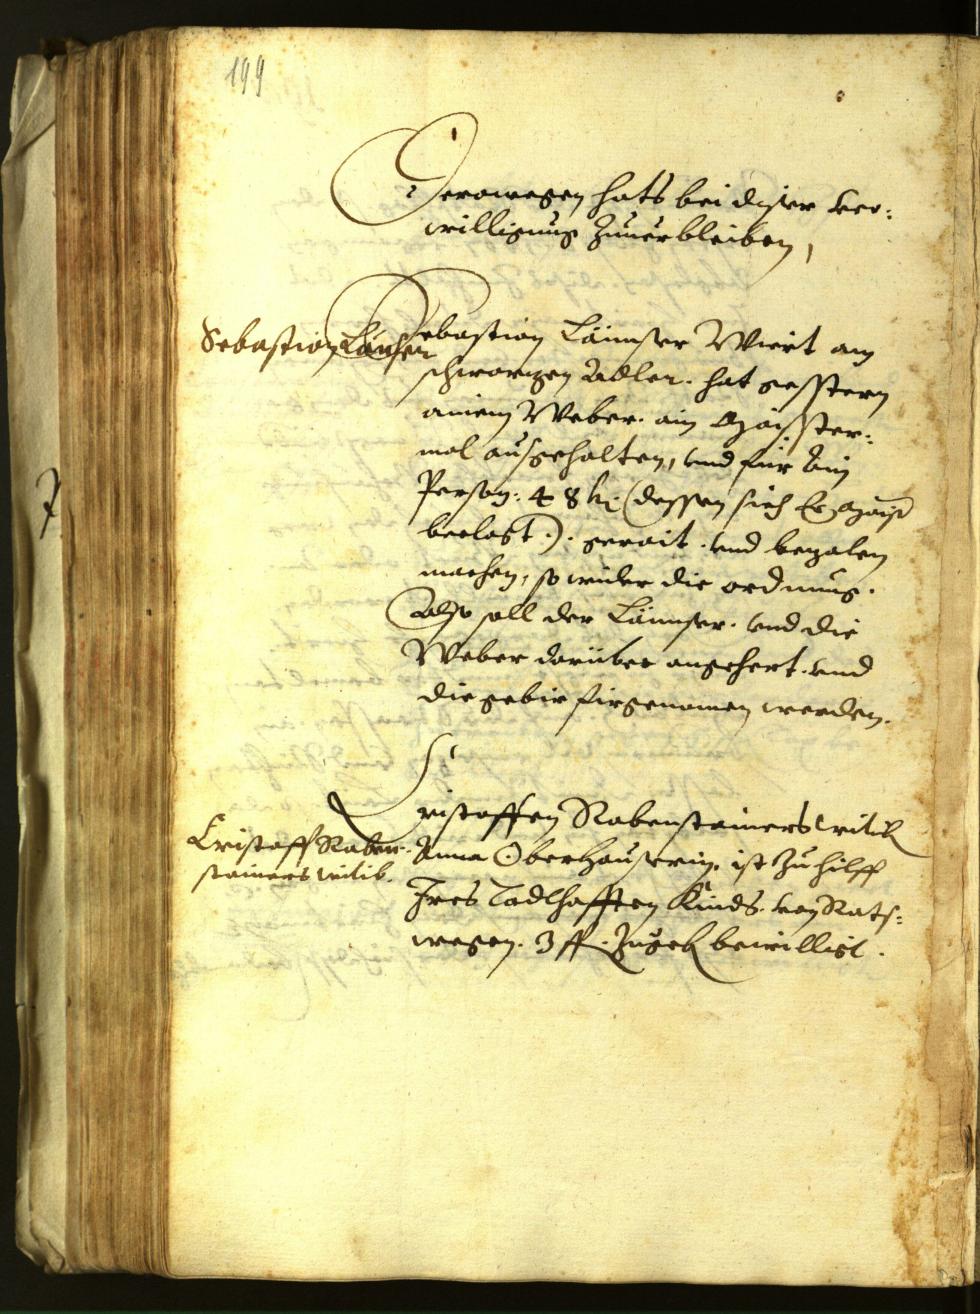 199
Derowegen hats bei diser ver:
willigung zuuerbleiben,
Sebastian Länser
Sebastian Länser Wiert am
schwarzen Adler. hat gesstern
ainem Weber. ain Maisster:
mal ausgehalten, vnd für ain
Person. 48 kr (dessen sich Er
beclagt.). gerait. vnd bezalen
machen, so wider die ordnung.
Also soll der Länser. vnd die
Weber darüber angehert. vnd
die gebir firgenomen werden.
Cristoff Raben:
stainers witib.
Cristoffen Rabenstainers witib
Anna Oberhauserin. ist zu hilff
Ires Kinds. von Rats:
wegen. 3 fl. zugeben bewilligt.